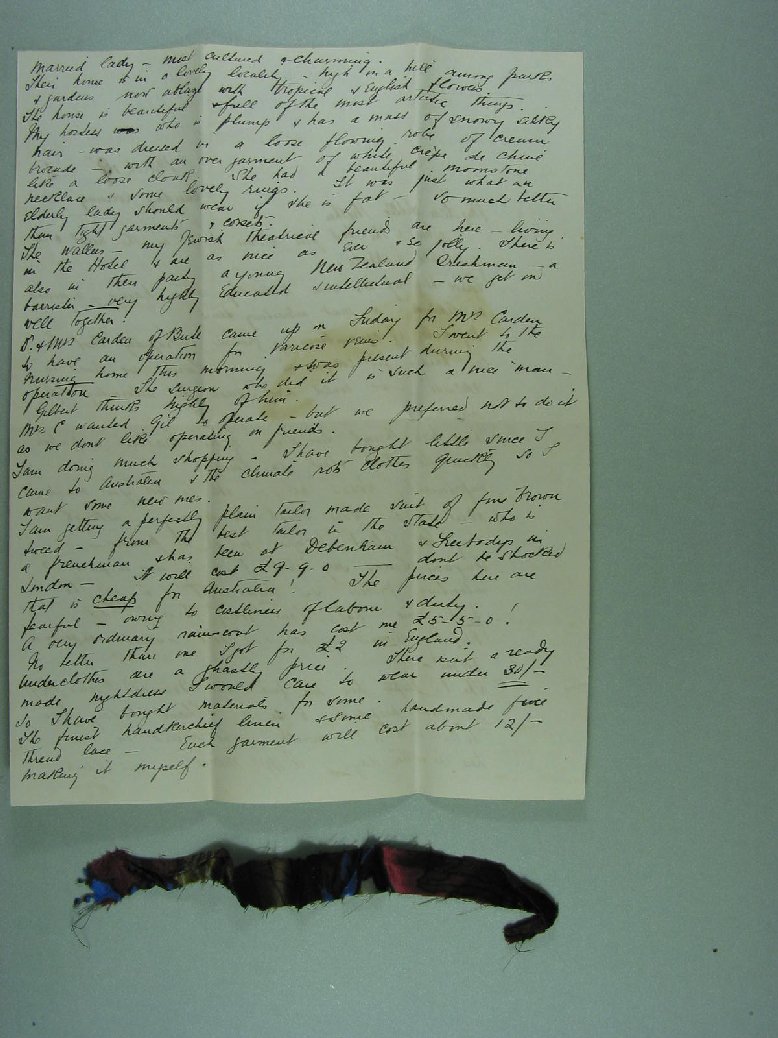 married lady – most cultured & charming.
Their house is in a lovely locality – high on a hill among parks
& gardens now ablaze with tropical & English flowers.
The house is beautiful & full of the most artistic things.
My hostess was who is plump & has a mass of snowy silky
hair – was dressed in a loose flowing robe of cream
brocade – with an over garment of white crêpe de chine
like a loose cloak. She had a beautiful moonstone
necklace & some lovely rings. It was just what an
elderly lady should wear if she is fat – so much better
than tight garments & corsets.
The Wallers – my Jewish theatrical friends are here – living
in the Hotel & are as nice as ever & so jolly. There is
also in their party a young New Zealand Irishman – a
barrister – very highly educated & intellectual – we get on
well together!
D. & Mrs Carden of Bule came up on Friday for Mrs Carden
to have an operation for varicose veins. I went to the
nursing home this morning & was present during the
operation. The surgeon who did it is such a nice man –
Gilbert thinks highly of him.
Mrs C wanted Gil to operate – but we preferred not to do it
as we dont like operating on friends.
I am doing much shopping – I have bought little since I
came to Australia & the climate rots clothes quickly so I
want some new ones.
I am getting a perfectly plain tailor made suit of fine brown
tweed – from the best tailor in the State – who is
a frenchman & has been at Debenham & Freebodys in
London – it will cost £9-9-0 dont be shocked
that is cheap for Australia! The prices here are
fearful – owing to costliness of labour & duty.
A very ordinary raincoat has cost me £5-5-0!
No better than one I got for £2 in England.
Underclothes are a ghastly price. There isnt a ready
made nightdress I would care to wear under 30/-
So I have bought materials for some.
The finest handkerchief linen & some handmade fine
thread lace – Each garment will cost about 12/-
making it myself.